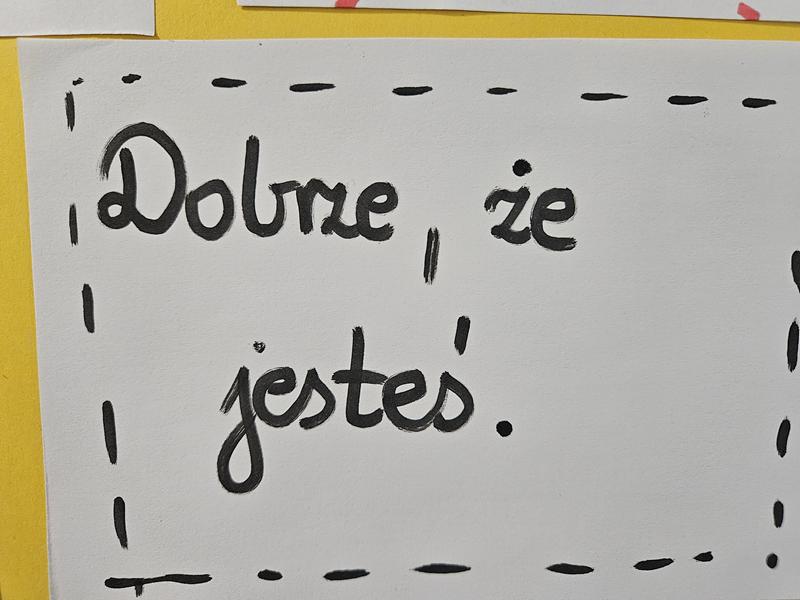 Dobrze, że
jesteś.